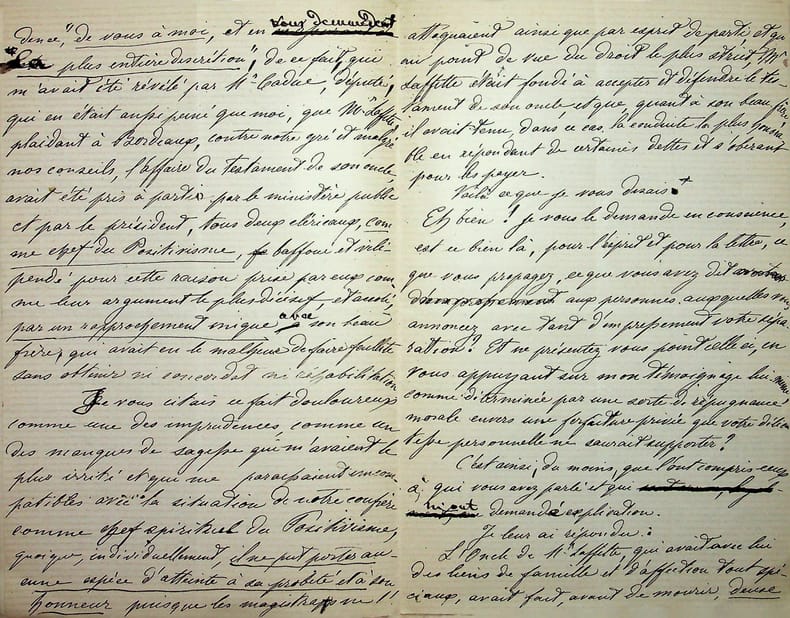 dence", de vous à moi, et en vous demandant
"la plus entière discrétion", de ce fait, qui
m'avait été révélé par Mr Cadue, député,
qui en était aussi peiné que moi, que Mr Laffitte
plaidant à Bordeaux, contre notre gré et malgré
nos conseils, l'affaire du testament de son oncle
avait été pris à partie par le ministère public
et par le président, tous deux cléricaux, com
me chef du Positivisme, bafoué et vili
pendé pour cette raison prise par eux com
me leur argument le plus décisif et accolé
par un rapprochement inique avec son beau
frère, qui avait eu le malheur de faire faillite
sans obtenir ni concordat ni réhabilitation
Je vous citais ce fait douloureux
comme une des imprudences, comme un
des manques de sagesse qui m'avaient le
plus irrité et qui me paraissaient incom
patibles avec la situation de notre confrère
comme chef spirituel du Positivisme,
quoique, individuellement, il ne put porter au-
cune espèce d'atteinte à sa probité et à son
honneur puisque les magistrats ne l'
attaquaient ainsi que par esprit de parti et qu'
au point de vue du droit le plus strict Mr
Laffitte était fondé à accepter et défendre le tes
tament de son oncle et que, quant à son beau frère
il avait tenu, dans ce cas, la conduite la plus honora
ble en répondant de certaines dettes et s'obérant
pour les payer.
Voilà ce que je vous disais.
Eh bien! je vous le demande en conscience,
est ce bien là, pour l'esprit et pour la lettre, ce
que vous propagez, ce que vous avez dit
aux personnes auxquelles vous
annoncez avec tant d'empressement votre sépa
ration? Et ne présentez vous point celle ci, en
vous appuyant sur mon témoignage lui même
comme déterminée par une sorte de répugnance
morale envers une forfaiture privée que votre délica
tesse personnelle ne saurait supporter?
C'est ainsi, du moins, que l'ont compris ceux
à qui vous avez parlé et qui
m'ont demandé explication.
Je leur ai répondu:
L'Oncle de Mr Laffitte, qui avait avec lui
des liens de famille et d'affection tout spé
ciaux, avait fait, avant de mourir, deux